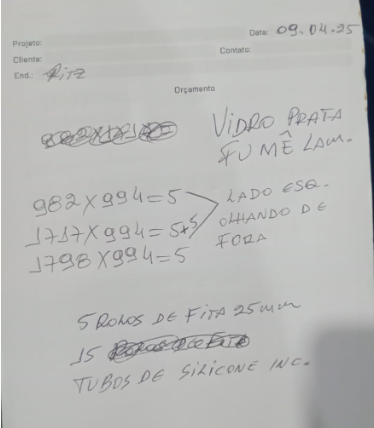 Data: 09.04.25
Projeto:
Contato:
Cliente:
End.: RITZ
Orçamento
VIDRO PRATA
FUMÊ LAM.
982X994=5
LADO ESQ.
1717X994=5+5
OLHANDO DE
FORA
1798X994=5
5 ROLOS DE FITA 25mm
15
TUBOS DE SILICONE INC.